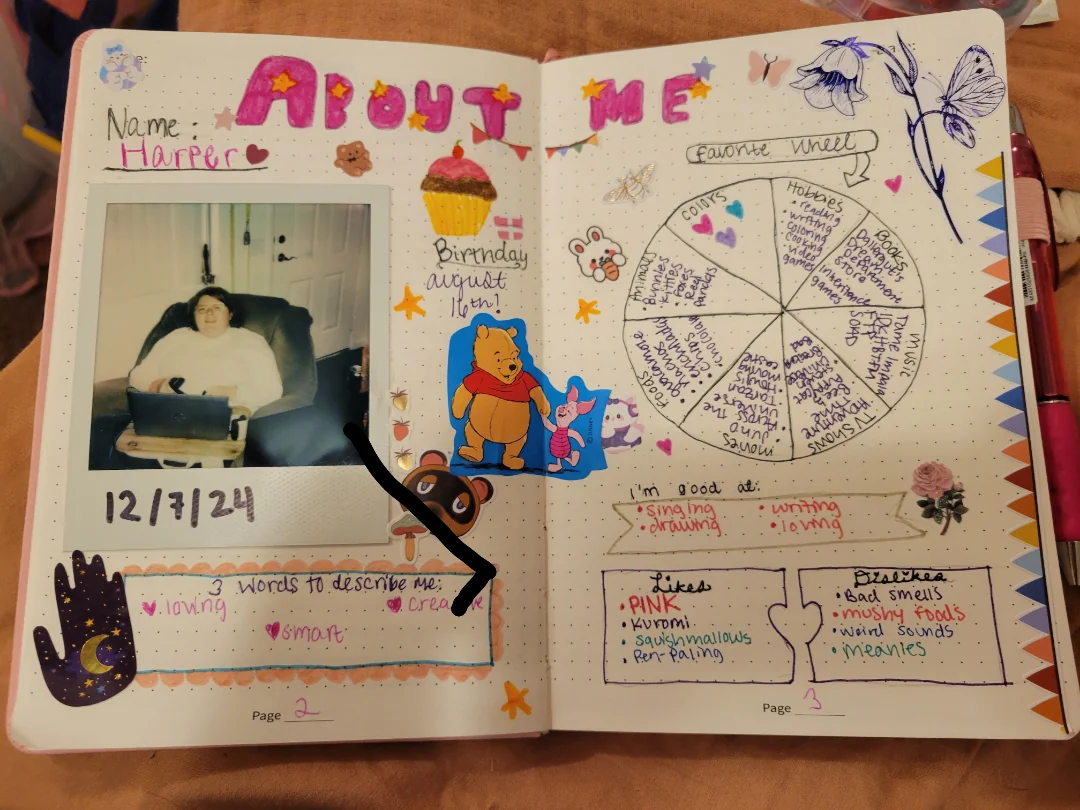 ABOUT ME
Name:
Harper
12/7/24
Birthday
august
16th!
3 words to describe me:
loving
creative
smart
Page 2
Favorite Wheel
Colors
Hobbies
• reading
• writing
• coloring
• cooking
• video
games
Books
Dallergut's
Dream
Department
Store
Inheritance
games
Music
Tame Impala
SOAD
TV Shows
Bad
movies
Juno
Across the
Universe
Tarzan
Howl's
moving
castle
Foods
guacamole
tacos
enchiladas
chips
chocolate
Animals
Bunnies
Kitties
Foxes
Red
pandas
I'm good at:
• singing
• writing
• drawing
• loving
Likes
• PINK
• Kuromi
• Squishmallows
• Pen-Paling
Dislikes
• Bad smells
• mushy foods
• weird sounds
• meanies
Page 3